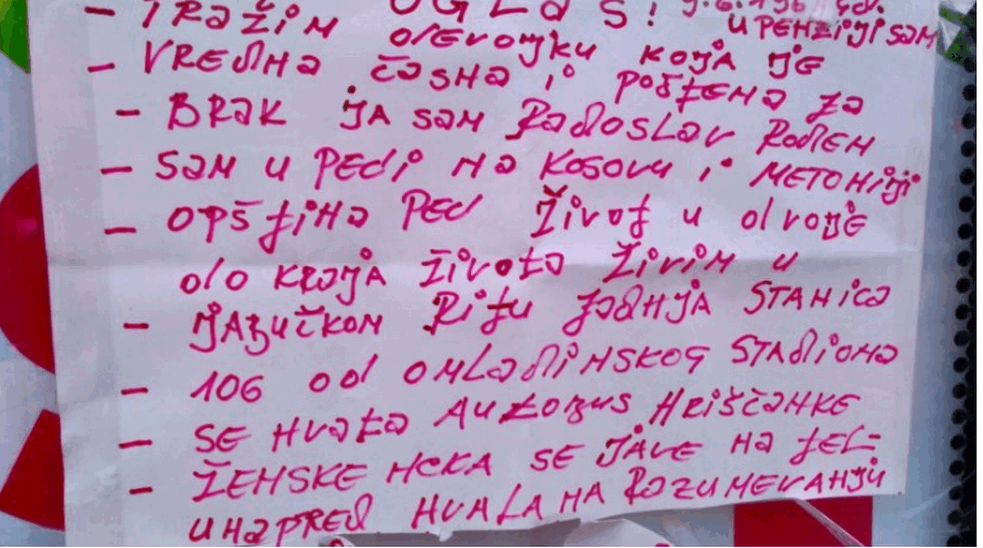 OGLAS!
- TRAŽIM DEVOJKU KOJA JE U PENZIJI SAM
- VREDNA ČASNA i POŠTENA ZA
- BRAK JA SAM RADOSLAV ROĐEN
- SAM U PEĆI NA KOSOVU i METOHIJI
- OPŠTINA PEĆ ŽIVOT U DVOJE
DO KRAJA ŽIVOTA ŽIVIM U
- JABUČKOM RITU ZADNJA STANICA
- 106 OD OMLADINSKOG STADIONA
- SE HVATA AUTOBUS HRIŠĆANKE
- ŽENSKE NEKA SE JAVE NA TEL-
UNAPRED HVALA NA RAZUMEVANJU